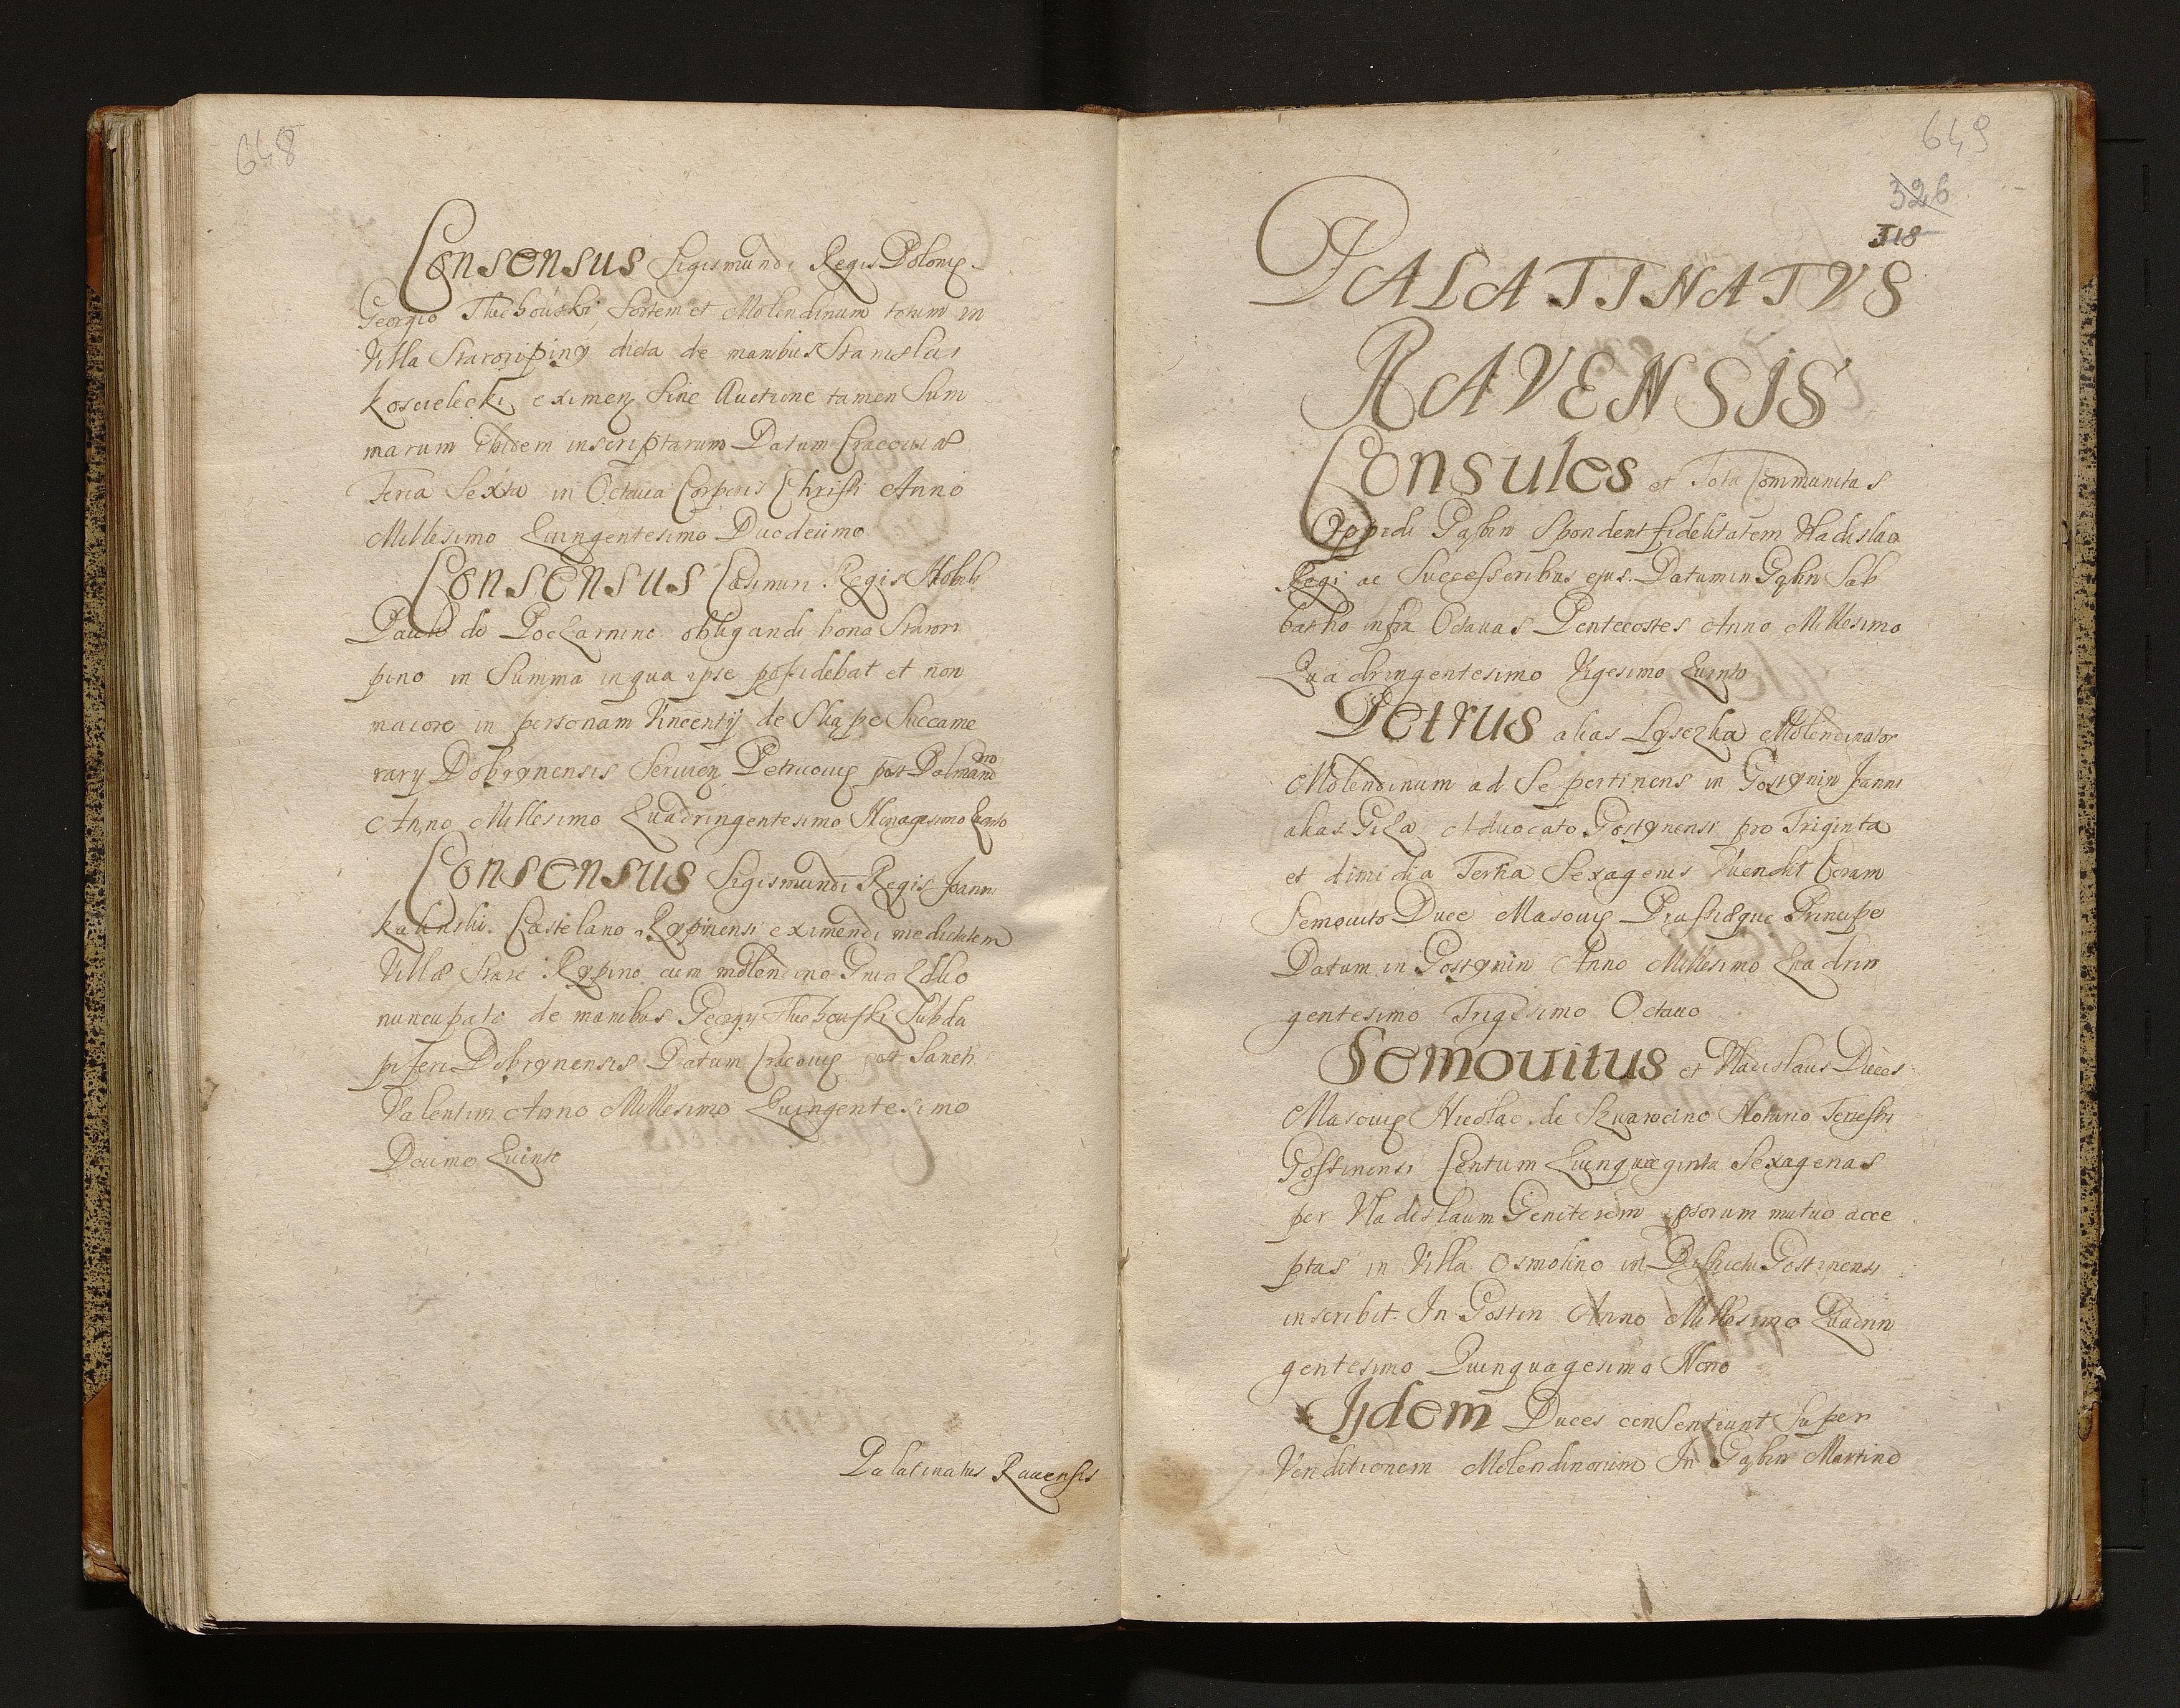 648
Consensus Sigismundi Regis Polonię
Georgio Thłuchowski Sortem et Molendinum totum in
Villa Staroripiny dicta de manibus Stanislai
Koscielecki eximen. Sine Auctione tamen Sum
marum ibidem inscriptarum Datum Cracoviæ
Feria Sexta in Octava Corporis Christi Anno
Millesimo Quingentesimo Duodecimo
Consensus Casimiri Regis Nobili
Paulo de Poczarnine obligandi bona Starori
pino in Summa in qua ipse possidebat et non
maiore in personam Vincentij de Slupe Succame
rarij Dobrynensis Servien. Petricovię post
Anno Millesimo Quadringentesimo Nonagesimo
Consensus Sigismundi Regis Joanni
Kalinski Castelano Rypinensi eximendi medietatem
Villæ Stare Rypino cum molendino
nuncupato de manibus Georgij Thuchouski Subda
piferi Dobrynensis Datum Cracovię post Sancti
Valentini Anno Millesimo Quingentesimo
Decimo Quinto
Palatinatus Rauensis
649
326
318
PALATINATVS
RAVENSIS
Consules et Tota Communitas
Oppidi Gąbin Spondent fidelitatem Vladislao
Regi ac Successoribus ejus. Datum in Gąbin Sab
batho infra Octavas Pentecostes Anno Millesimo
Quadringentesimo Vigesimo Quinto
Petrus alias Lysczka Molendinator
Molendinum ad Se pertinens in Gostynin Janni
alias Giza Advocato Gostynensi pro Triginta
et dimidia Tertia Sexagenis Vuendit Coram
Semovito Duce Masovię Prussięque Principe
Datum in Gostynin Anno Millesimo Quadrin
gentesimo Trigesimo Octavo
Semouitus et Vladislaus Duces
Masovię Nicolao de Skwarocino Notario Terestri
Gostinensi Centum Quinquaginta Sexagenas
per Vladislaum Genitorem ipsorum mutuo acce
ptas in Villa Osmolino in Districtu Gostinensi
inscribit. In Gostin Anno Millesimo Quadrin
gentesimo Quinquagesimo Nono
Ijdem Duces consentiunt Super
Venditionem Molendinorum In Gąbin Martino